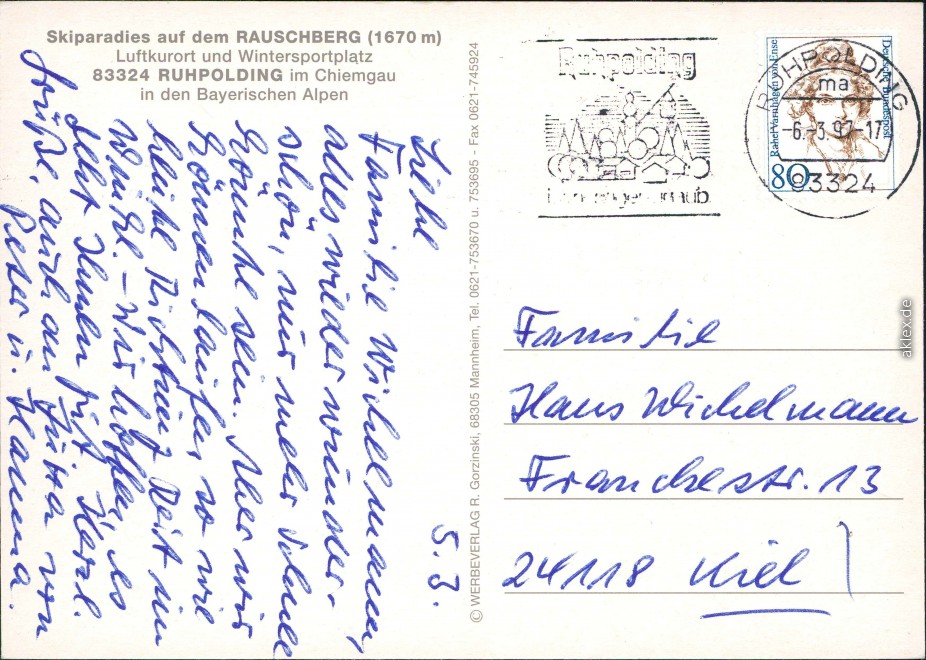 Skiparadies auf dem RAUSCHBERG (1670 m)
Luftkurort und Wintersportplatz
83324 RUHPOLDING im Chiemgau
in den Bayerischen Alpen
5.3.
Liebe
Familie Wichelmann,
alles wieder wunder-
schön, nur mehr Schnee
könnte sein. Aber wir
können laufen so wie
heute Richtung Reit im
Winkl. – Wir hoffen, es
geht Ihnen gut. Herzl.
Grüße, auch an Jutta von
Peter u. Hanna.
© WERBEVERLAG R. Gorzinski, 68305 Mannheim, Tel. 0621-753670 u. 753695 - Fax 0621-745924
Ruhpolding
RUHPOLDING
ma
-6.-3.97-17
83324
Deutsche Bundespost
Rahel Varnhagen von Ense
80
Familie
Hans Wichelmann
Franckestr. 13
24118 Kiel
aklex.de